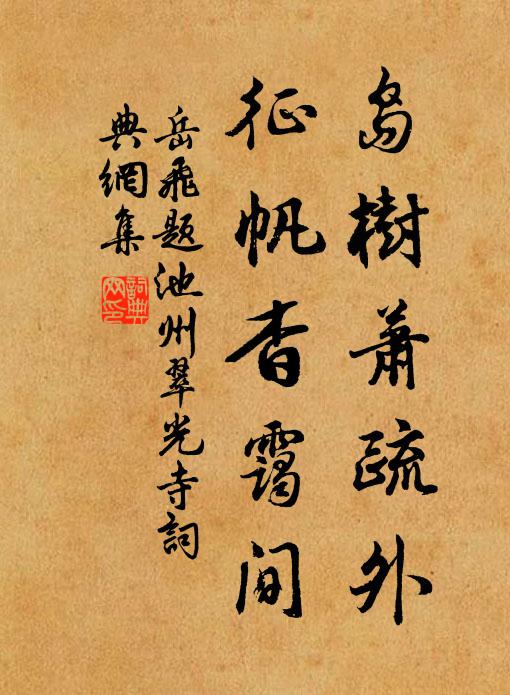 島樹蕭疏外
征帆杳靄間
岳飛題池州翠光寺詞
典網集
詞典
网印